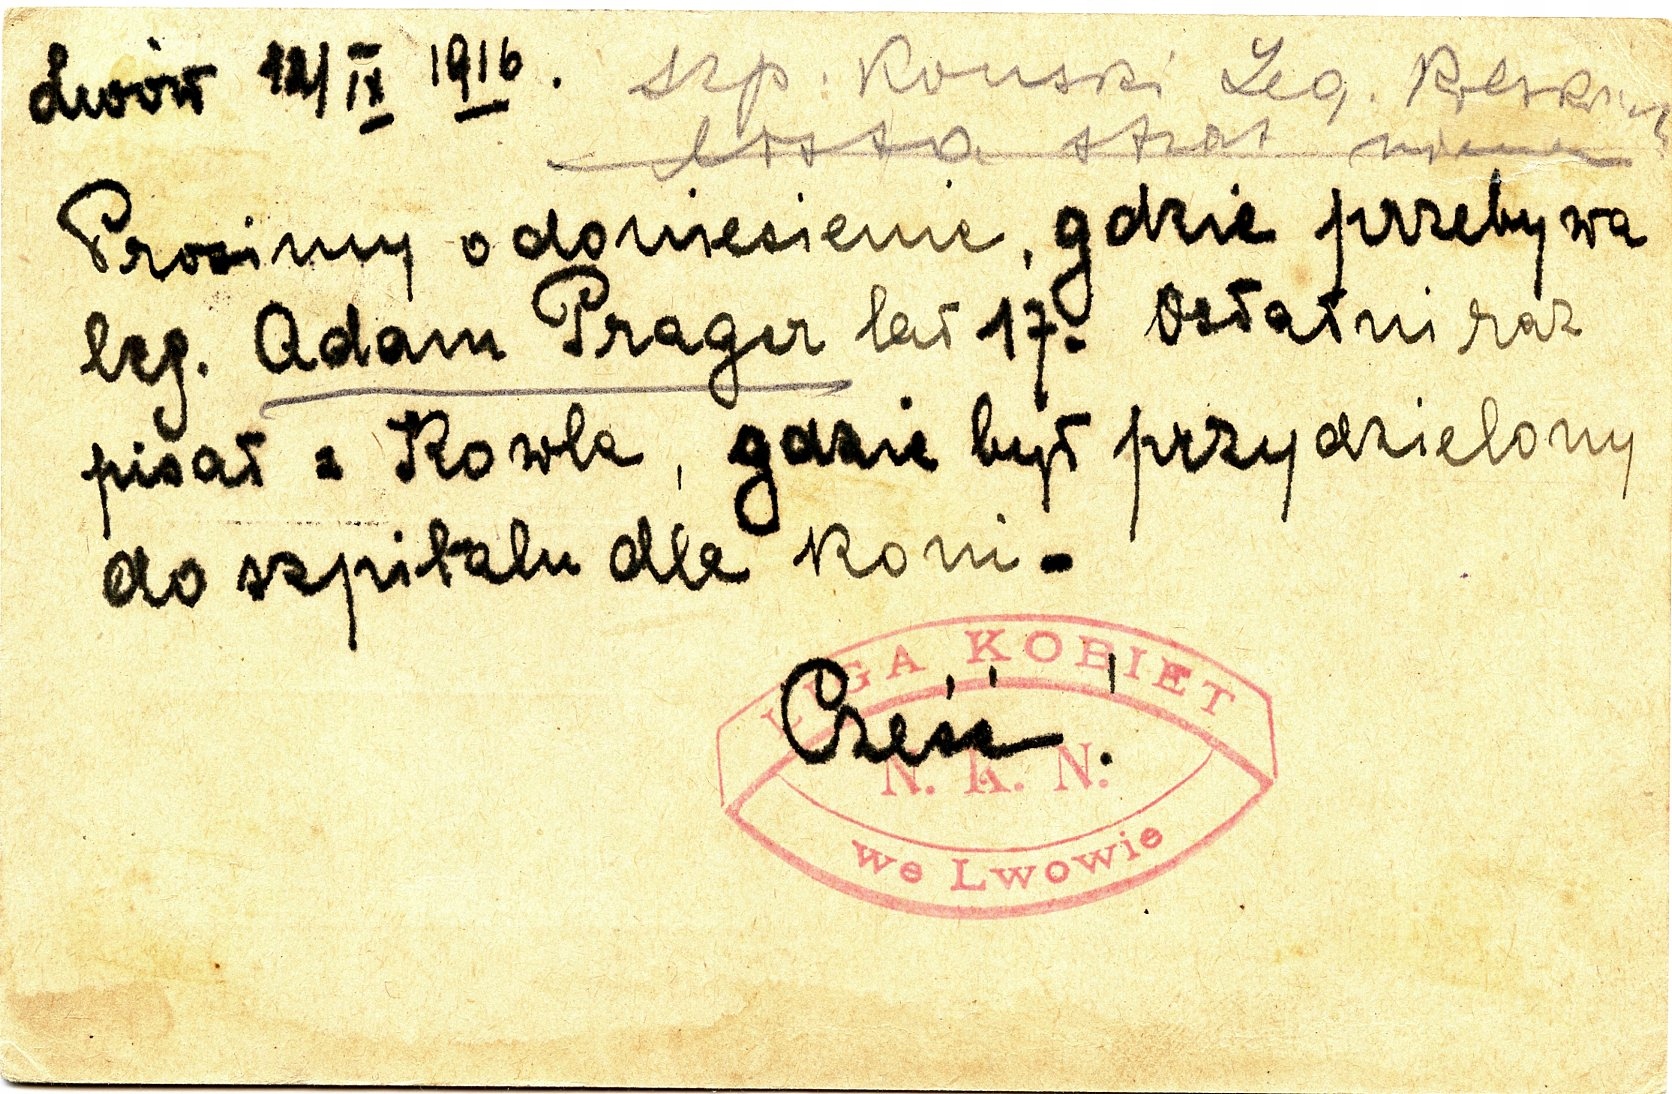 Lwów 12/IX 1916.
szp: Konski Leg. Polskich
lista strat
Prosimy o doniesienie, gdzie przebywa
leg. Adam Prager lat 17. Ostatni raz
pisał z Kowla, gdzie był przydzielony
do szpitalu dla koni.
Cześć!
LIGA KOBIET
N. K. N.
we Lwowie